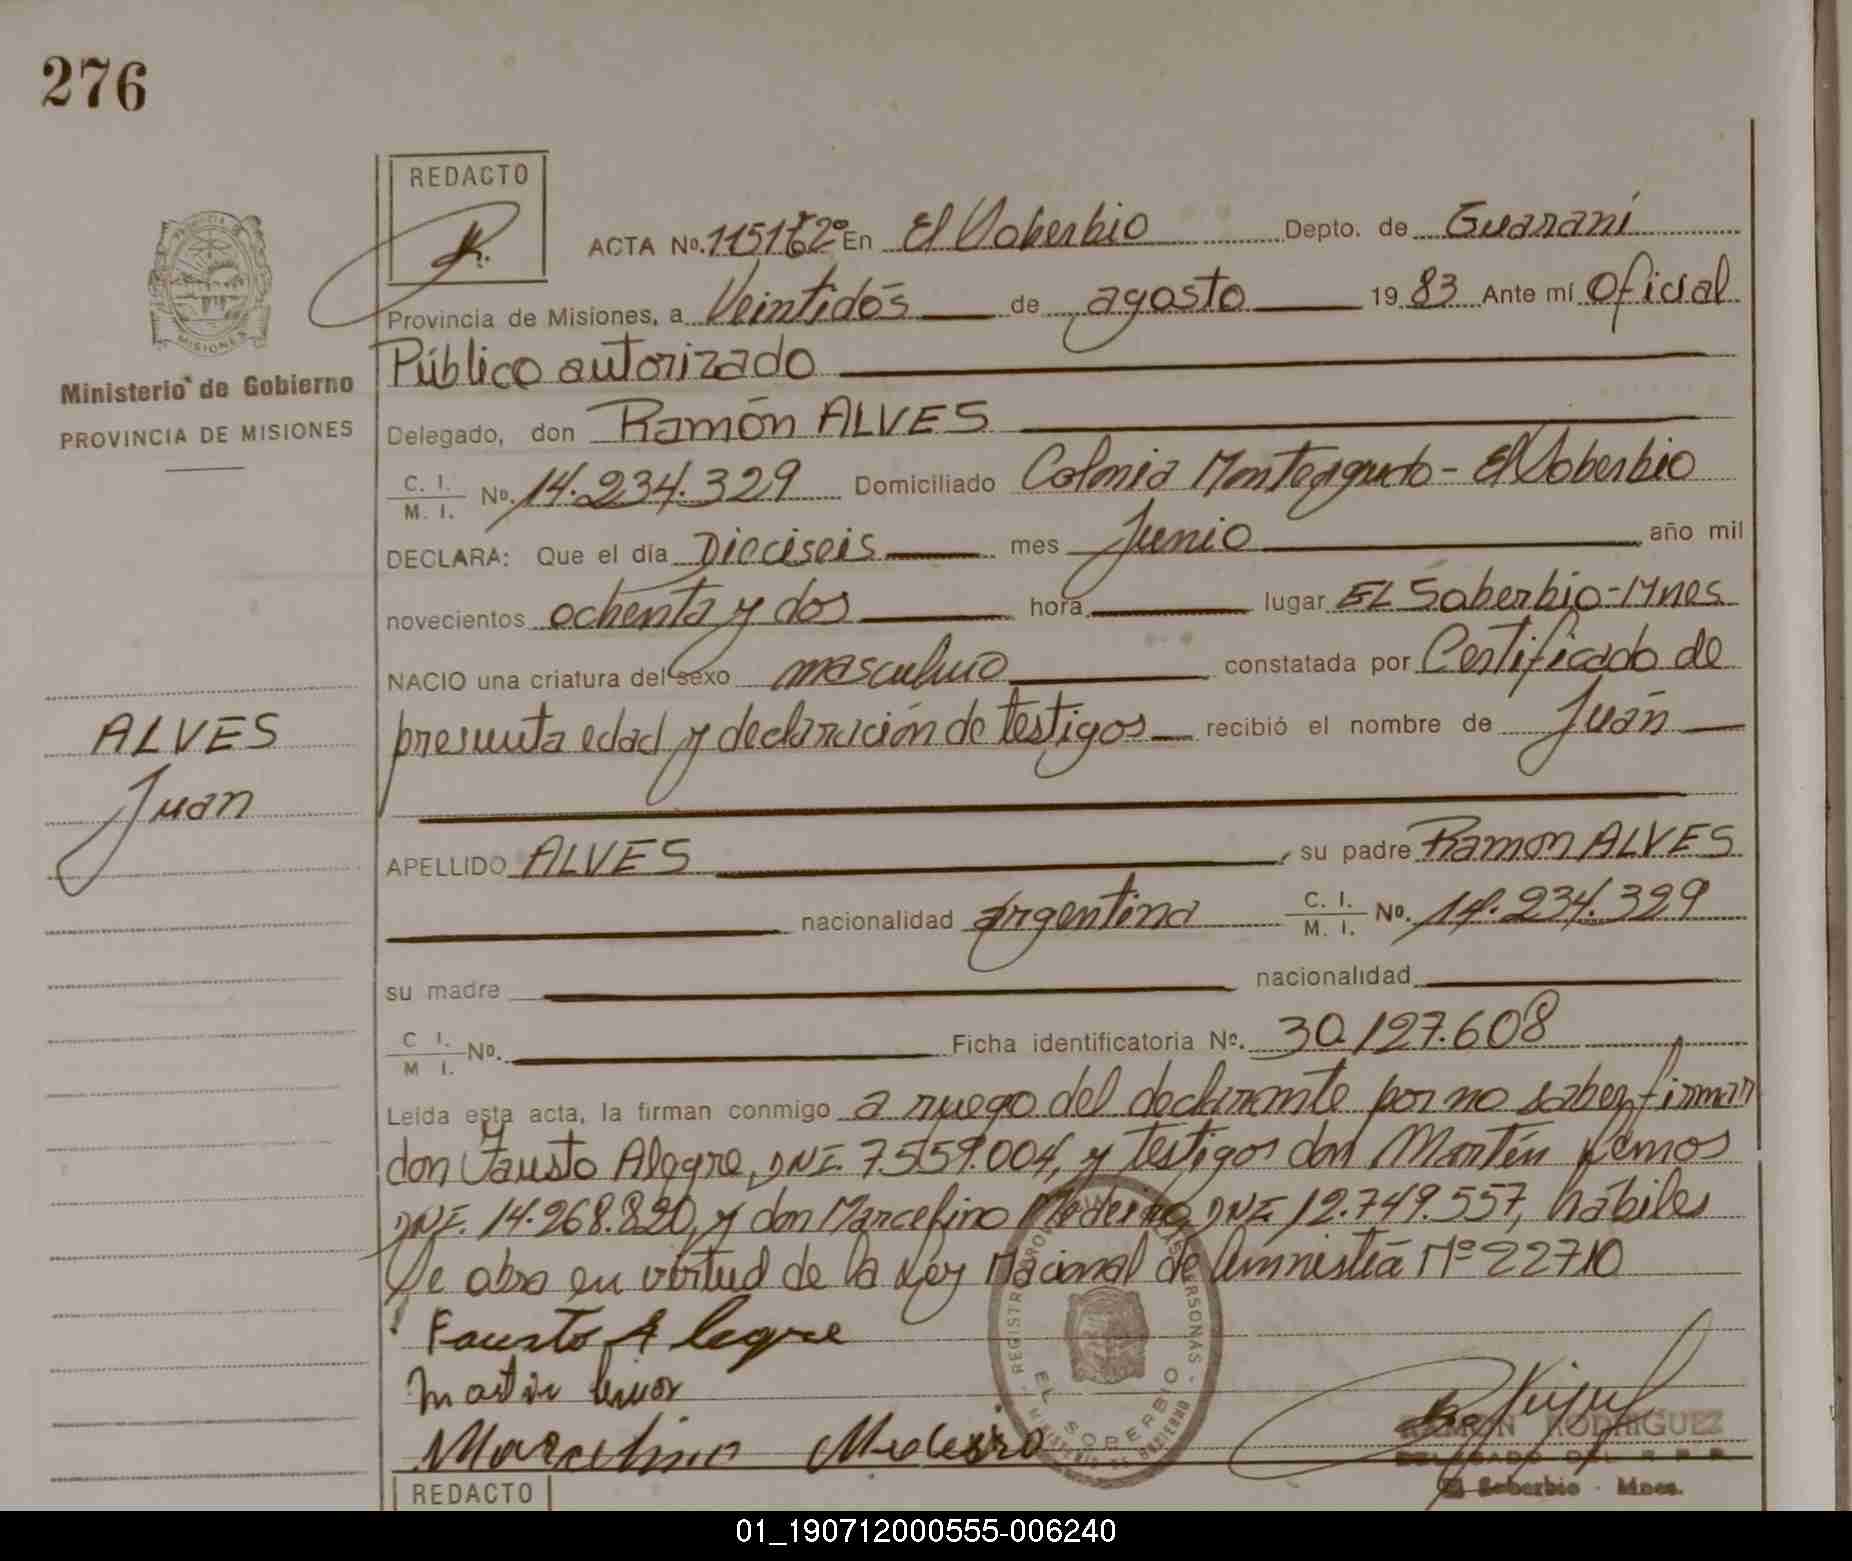 276
REDACTO
ACTA No. En El Soberbio Depto. de Guaraní
Provincia de Misiones, a Veintidós de agosto 19 83 Ante mí Oficial
Público autorizado
Delegado, don Ramón ALVES
C. I. / M. I. No. 14.234.329 Domiciliado Colonia Monteagudo - El Soberbio
DECLARA: Que el día Dieciseis mes Junio año mil
novecientos ochenta y dos hora lugar EL Soberbio - Mnes
NACIO una criatura del sexo masculino constatada por Certificado de
presunta edad y declaración de testigos recibió el nombre de Juán
APELLIDO ALVES, su padre Ramón ALVES
nacionalidad argentina C. I. / M. I. No. 14.234.329
su madre nacionalidad
C I. / M I. No. Ficha identificatoria No. 30.127.608
Leída esta acta, la firman conmigo a ruego del declarante por no saber firmar
don Fausto Alegre, DNI. 7.559.004, y testigos don Martín Lemos
DNI. 14.268.820, y don Marcelino Medeiro, DNI 12.749.557, hábiles
Se abra en virtud de la Ley Nacional de Amnistía Nº 22710
Fausto Alegre
Martin Lemos
Marcelino Medeiro
RAMON RODRIGUEZ
El Soberbio - Mnes.
REDACTO
MISIONES
Ministerio de Gobierno
PROVINCIA DE MISIONES
ALVES
Juan
EL SOBERBIO
01_190712000555-006240